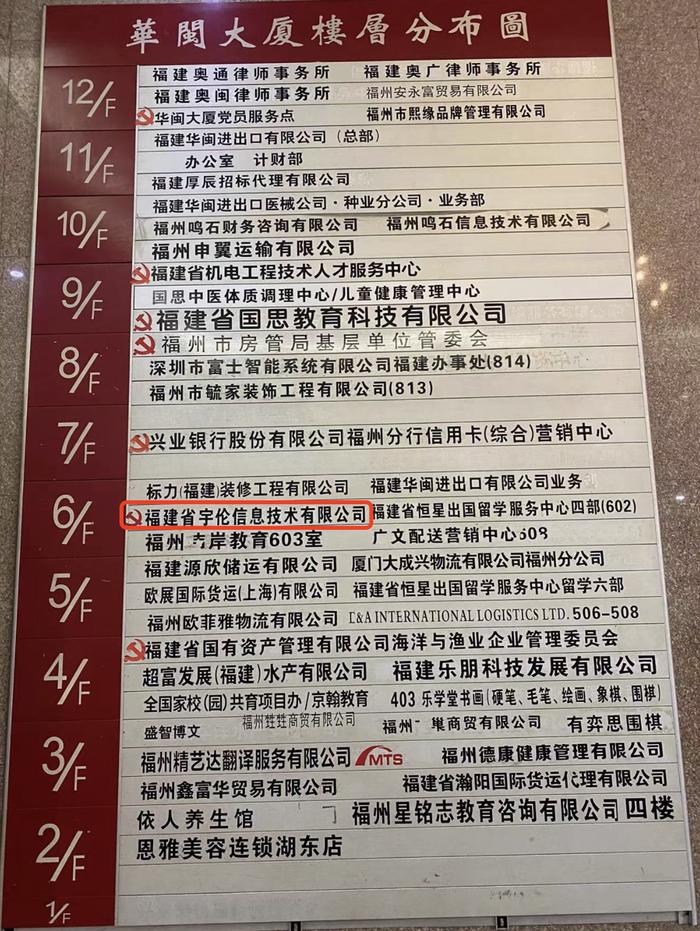 華閩大厦樓層分布圖
12/F
福建奥通律师事务所 福建奥广律师事务所
福建奥闽律师事务所 福州安永富贸易有限公司
华闽大厦党员服务点 福州市熙缘品牌管理有限公司
11/F
福建华闽进出口有限公司（总部）
办公室 计财部
福建厚辰招标代理有限公司
10/F
福建华闽进出口医械公司·种业分公司·业务部
福州鸣石财务咨询有限公司 福州鸣石信息技术有限公司
福州申翼运输有限公司
9/F
福建省机电工程技术人才服务中心
国思中医体质调理中心/儿童健康管理中心
福建省国思教育科技有限公司
8/F
福州市房管局基层单位管委会
深圳市富士智能系统有限公司福建办事处(814)
福州市毓家装饰工程有限公司(813)
7/F
兴业银行股份有限公司福州分行信用卡(综合)营销中心
6/F
标力(福建)装修工程有限公司 福建华闽进出口有限公司业务
福建省宇伦信息技术有限公司 福建省恒星出国留学服务中心四部(602)
福州 岸教育603室 广文配送营销中心508
5/F
福建源欣储运有限公司 厦门大成兴物流有限公司福州分公司
欧展国际货运(上海)有限公司 福建省恒星出国留学服务中心留学六部
福州欧菲雅物流有限公司 E&A INTERNATIONAL LOGISTICS LTD. 506-508
4/F
福建省国有资产管理有限公司海洋与渔业企业管理委员会
超富发展(福建)水产有限公司 福建乐朋科技发展有限公司
全国家校(园)共育项目办/京翰教育 403 乐学堂书画(硬笔、毛笔、绘画、象棋、围棋)
盛智博文 福州甡甡商贸有限公司 福州 巢商贸有限公司 有弈思围棋
3/F
福州精艺达翻译服务有限公司 MTS 福州德康健康管理有限公司
福州鑫富华贸易有限公司 福建省瀚阳国际货运代理有限公司
2/F
依人养生馆 福州星铭志教育咨询有限公司四楼
恩雅美容连锁湖东店
1/F